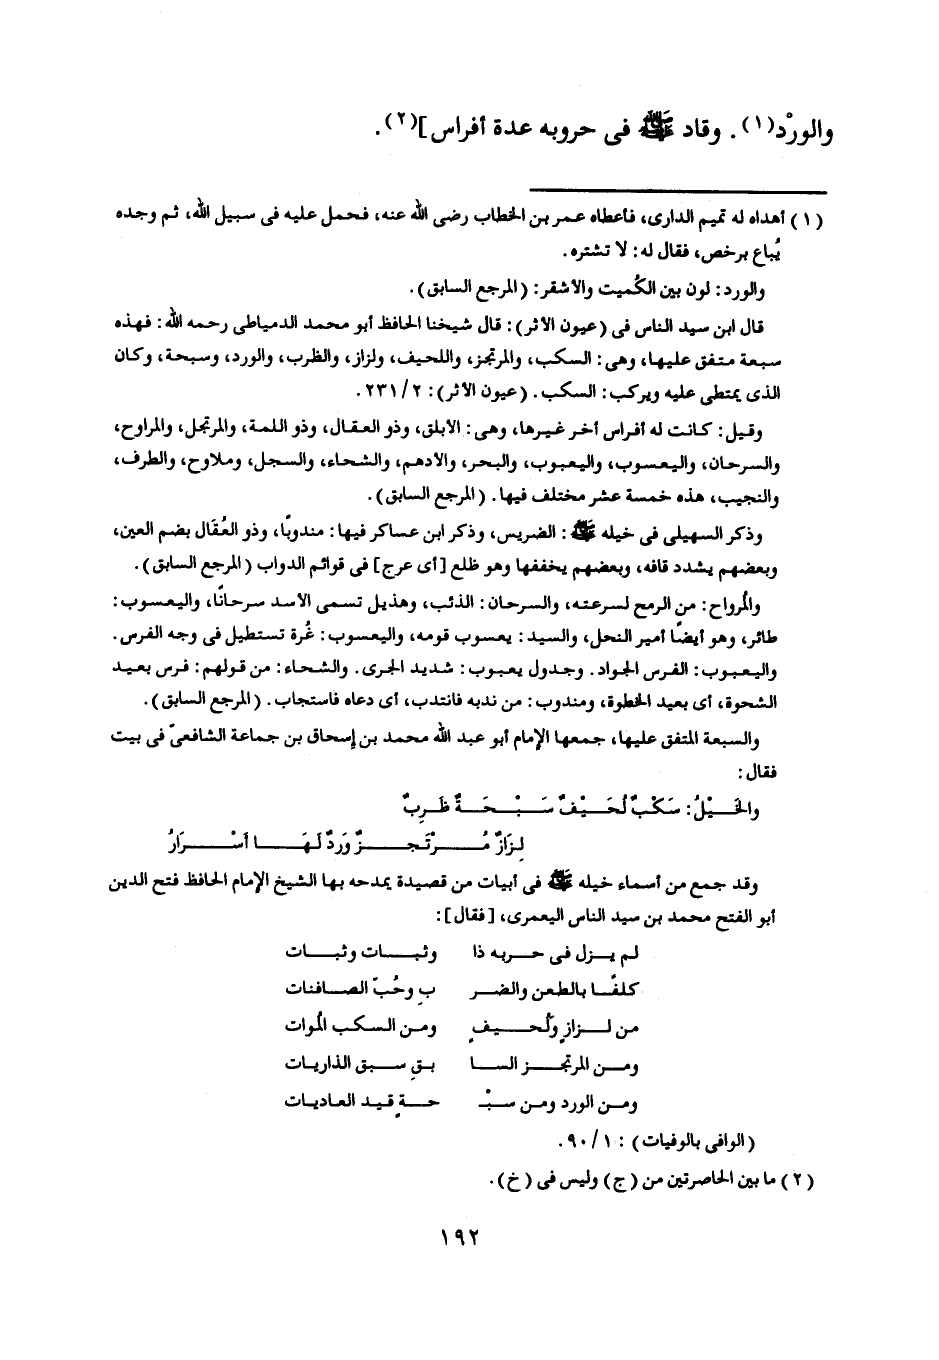 والورْد(١). وقاد ﷺ فى حروبه عدة أفراس](٢).
(١) أهداه له تميم الدارى، فأعطاه عمر بن الخطاب رضى الله عنه، فحمل عليه فى سبيل الله، ثم وجده
يُباع برخص، فقال له: لا تشتره.
والورد: لون بين الكُميت والأشقر: (المرجع السابق).
قال ابن سيد الناس فى (عيون الأثر): قال شيخنا الحافظ أبو محمد الدمياطى رحمه الله: فهذه
سبعة متفق عليها، وهى: السكب، والمرتجز، واللحيف، ولزاز، والظرب، والورد، وسبحة، وكان
الذى يمتطى عليه ويركب: السكب. (عيون الأثر): ٢/ ٢٣١.
وقيل: كانت له أفراس أخر غيرها، وهى: الأبلق، وذو العقال، وذو اللمة، والمرتجل، والمراوح،
والسرحان، واليعسوب، واليعبوب، والبحر، والأدهم، والشحاء، والسجل، وملاوح، والطرف،
والنجيب، هذه خمسة عشر مختلف فيها. (المرجع السابق).
وذكر السهيلى فى خيله ﷺ: الضريس، وذكر ابن عساكر فيها: مندوبًا، وذو العُقَال بضم العين،
وبعضهم يشدد قافه، وبعضهم يخففها وهو ظلع [أى عرج] فى قوائم الدواب (المرجع السابق).
والمُرواح: من الرمح لسرعته، والسرحان: الذئب، وهذيل تسمى الأسد سرحانًا، واليعسوب:
طائر، وهو أيضًا أمير النحل، والسيد: يعسوب قومه، واليعسوب: غُرة تستطيل فى وجه الفرس.
واليعبوب: الفرس الجواد. وجدول يعبوب: شديد الجرى. والشحاء: من قولهم: فرس بعيد
الشحوة، أى بعيد الخطوة، ومندوب: من ندبه فانتدب، أى دعاه فاستجاب. (المرجع السابق).
والسبعة المتفق عليها، جمعها الإمام أبو عبد الله محمد بن إسحاق بن جماعة الشافعىّ فى بيت
فقال:
والخَيْلُ: سَكْبٌ لُحَيْفٌ سَبْحَةٌ ظَرِبٌ
لِزَازٌ مُرْتَجِزٌ وَرْدٌ لَهَا أسْرَارُ
وقد جمع من أسماء خيله ﷺ فى أبيات من قصيدة يمدحه بها الشيخ الإمام الحافظ فتح الدين
أبو الفتح محمد بن سيد الناس اليعمرى، [فقال]:
لم يزل فى حربه ذا وثبات وثبات
كلفًا بالطعن والضر بِ وحُبّ الصافنات
من لزازٍ ولُحيفٍ ومن السكب المُوات
ومن المرتجز السا بقِ سبق الذاريات
ومن الورد ومن سبْـ حةٍ قيد العاديات
(الوافى بالوفيات): ١/ ٩٠.
(٢) ما بين الحاصرتين من (ج) وليس فى (خ).
١٩٢